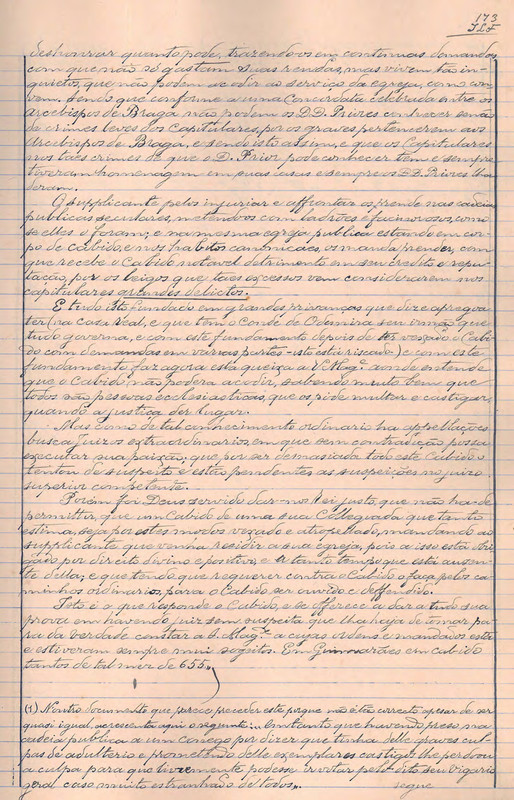 173
deshonrar quanto pode, trazendo-os em continuas demandas
com que não só gastam suas rendas, mas vivem tão in-
quietos, que não podem acodir ao serviço da egreja, como con-
vem, sendo que conforme a uma Concordata celebrada entre os
Arcebispos de Braga não podem os DD. Priores conhecer senão
de crimes leves dos Capitulares, por os graves pertencerem aos
Arcebispos de Braga, e sendo isto assim, e que os Capitulares
nos taes crimes de que o D. Prior pode conhecer tem e sempre
tiveram homenagem em suas casas e sempre os DD. Priores lha
deram.
O supplicante pelos injuriar e affrontar os prende nas cadeias
publicas seculares, mettendo-os com ladrões e facinorosos, como
se elles o foram; e na mesma egreja publica estando em cor-
po de Cabido, e nos habitos canonicaes, os manda prender, com
que recebe o Cabido notavel detrimento em seu credito e repu-
tação, por os leigos que taes excessos vem considerarem nos
capitulares grandes delictos.
E tudo isto fundado em grandes privanças que diz e apregoa
ter (na casa Real, e que tem o Conde de Odemira seu irmão que
tudo governa, e com este fundamento depois de ter vexado o Cabi-
do com demandas em varias partes - isto está riscado -) e com este
fundamento faz agora esta queixa a V. Mag.e aonde entende
que o Cabido não poderá acodir, sabendo muito bem que
todos são pessoas ecclesiasticas, que os póde multar e castigar,
quando a justiça der lugar.
Mas como de tal conhecimento ordinario ha appellações
busca Juizos extraordinarios, em que sem contradição possa
executar sua paixão, que por ser demasiada todo este Cabido o
tentou de suspeito e estão pendentes as suspeições no juizo
superior competente.
Porém foi Deus servido dar-nos Rei justo, que não ha de
permittir, que um Cabido de uma sua Collegiada que tanto
estima, seja por estes modos vexado e atropellado, mandando ao
supplicante que venha residir a sua egreja, pois a isso está obri-
gado por direito divino e positivo, e ha tanto tempo que está ausen-
te della; e que tendo que requerer contra o Cabido o faça pelos ca-
minhos ordinarios, para o Cabido ser ouvido e deffendido.
Isto é o que responde o Cabido, e se offerece a dar a tudo sua
prova em havendo juiz sem suspeita que lha haja de tomar pa-
ra da verdade constar a V. Mag.e a cujas ordens e mandados estão
e estiveram sempre mui sogeitos. Em Guimarães em cabido
tantos de tal mez de 655.,,
(1) N'outro documento que parece preceder este porque não está correcto apesar de ser
quasi igual, acrescenta aqui o seguinte: ... Emtanto que havendo preso na
cadeia publica a um conego por dizer que tinha delle graves cul-
pas de adulterio e promettendo delle exemplares castigos lhe perdoou
a culpa para que livremente podesse ir votar pelo dito seu Vigario
geral caso muito estranhado de todos.,,
segue